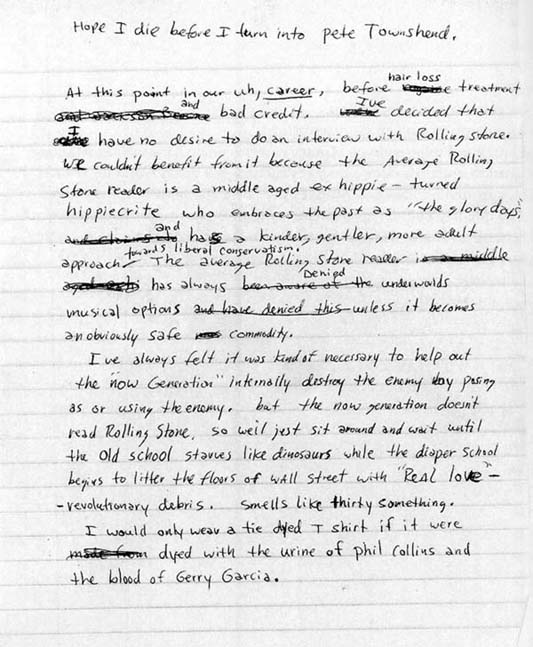 Hope I die before I turn into pete Townshend.
hair loss
At this point in our uh, career, before treatment
and bad credit. I've decided that
I have no desire to do an interview with Rolling Stone.
We couldn't benefit from it because the Average Rolling
Stone reader is a middle aged ex hippie - turned
hippiecrite who embraces the past as "the glory days",
and has a kinder, gentler, more adult
approach towards liberal conservatism. The average Rolling Stone reader is a middle
has always Denied the underworlds
musical options and have denied this unless it becomes
an obviously safe commodity.
I've always felt it was kind of necessary to help out
the "now Generation" internally destroy the enemy by posing
as or using the enemy. but the now generation doesn't
read Rolling Stone, so we'll just sit around and wait until
the Old school starves like dinosaurs while the diaper school
begins to litter the floors of wall street with "Real love" -
- revolutionary debris. Smells like thirty something.
I would only wear a tie dyed T shirt if it were
made from dyed with the urine of phil collins and
the blood of Gerry Garcia.